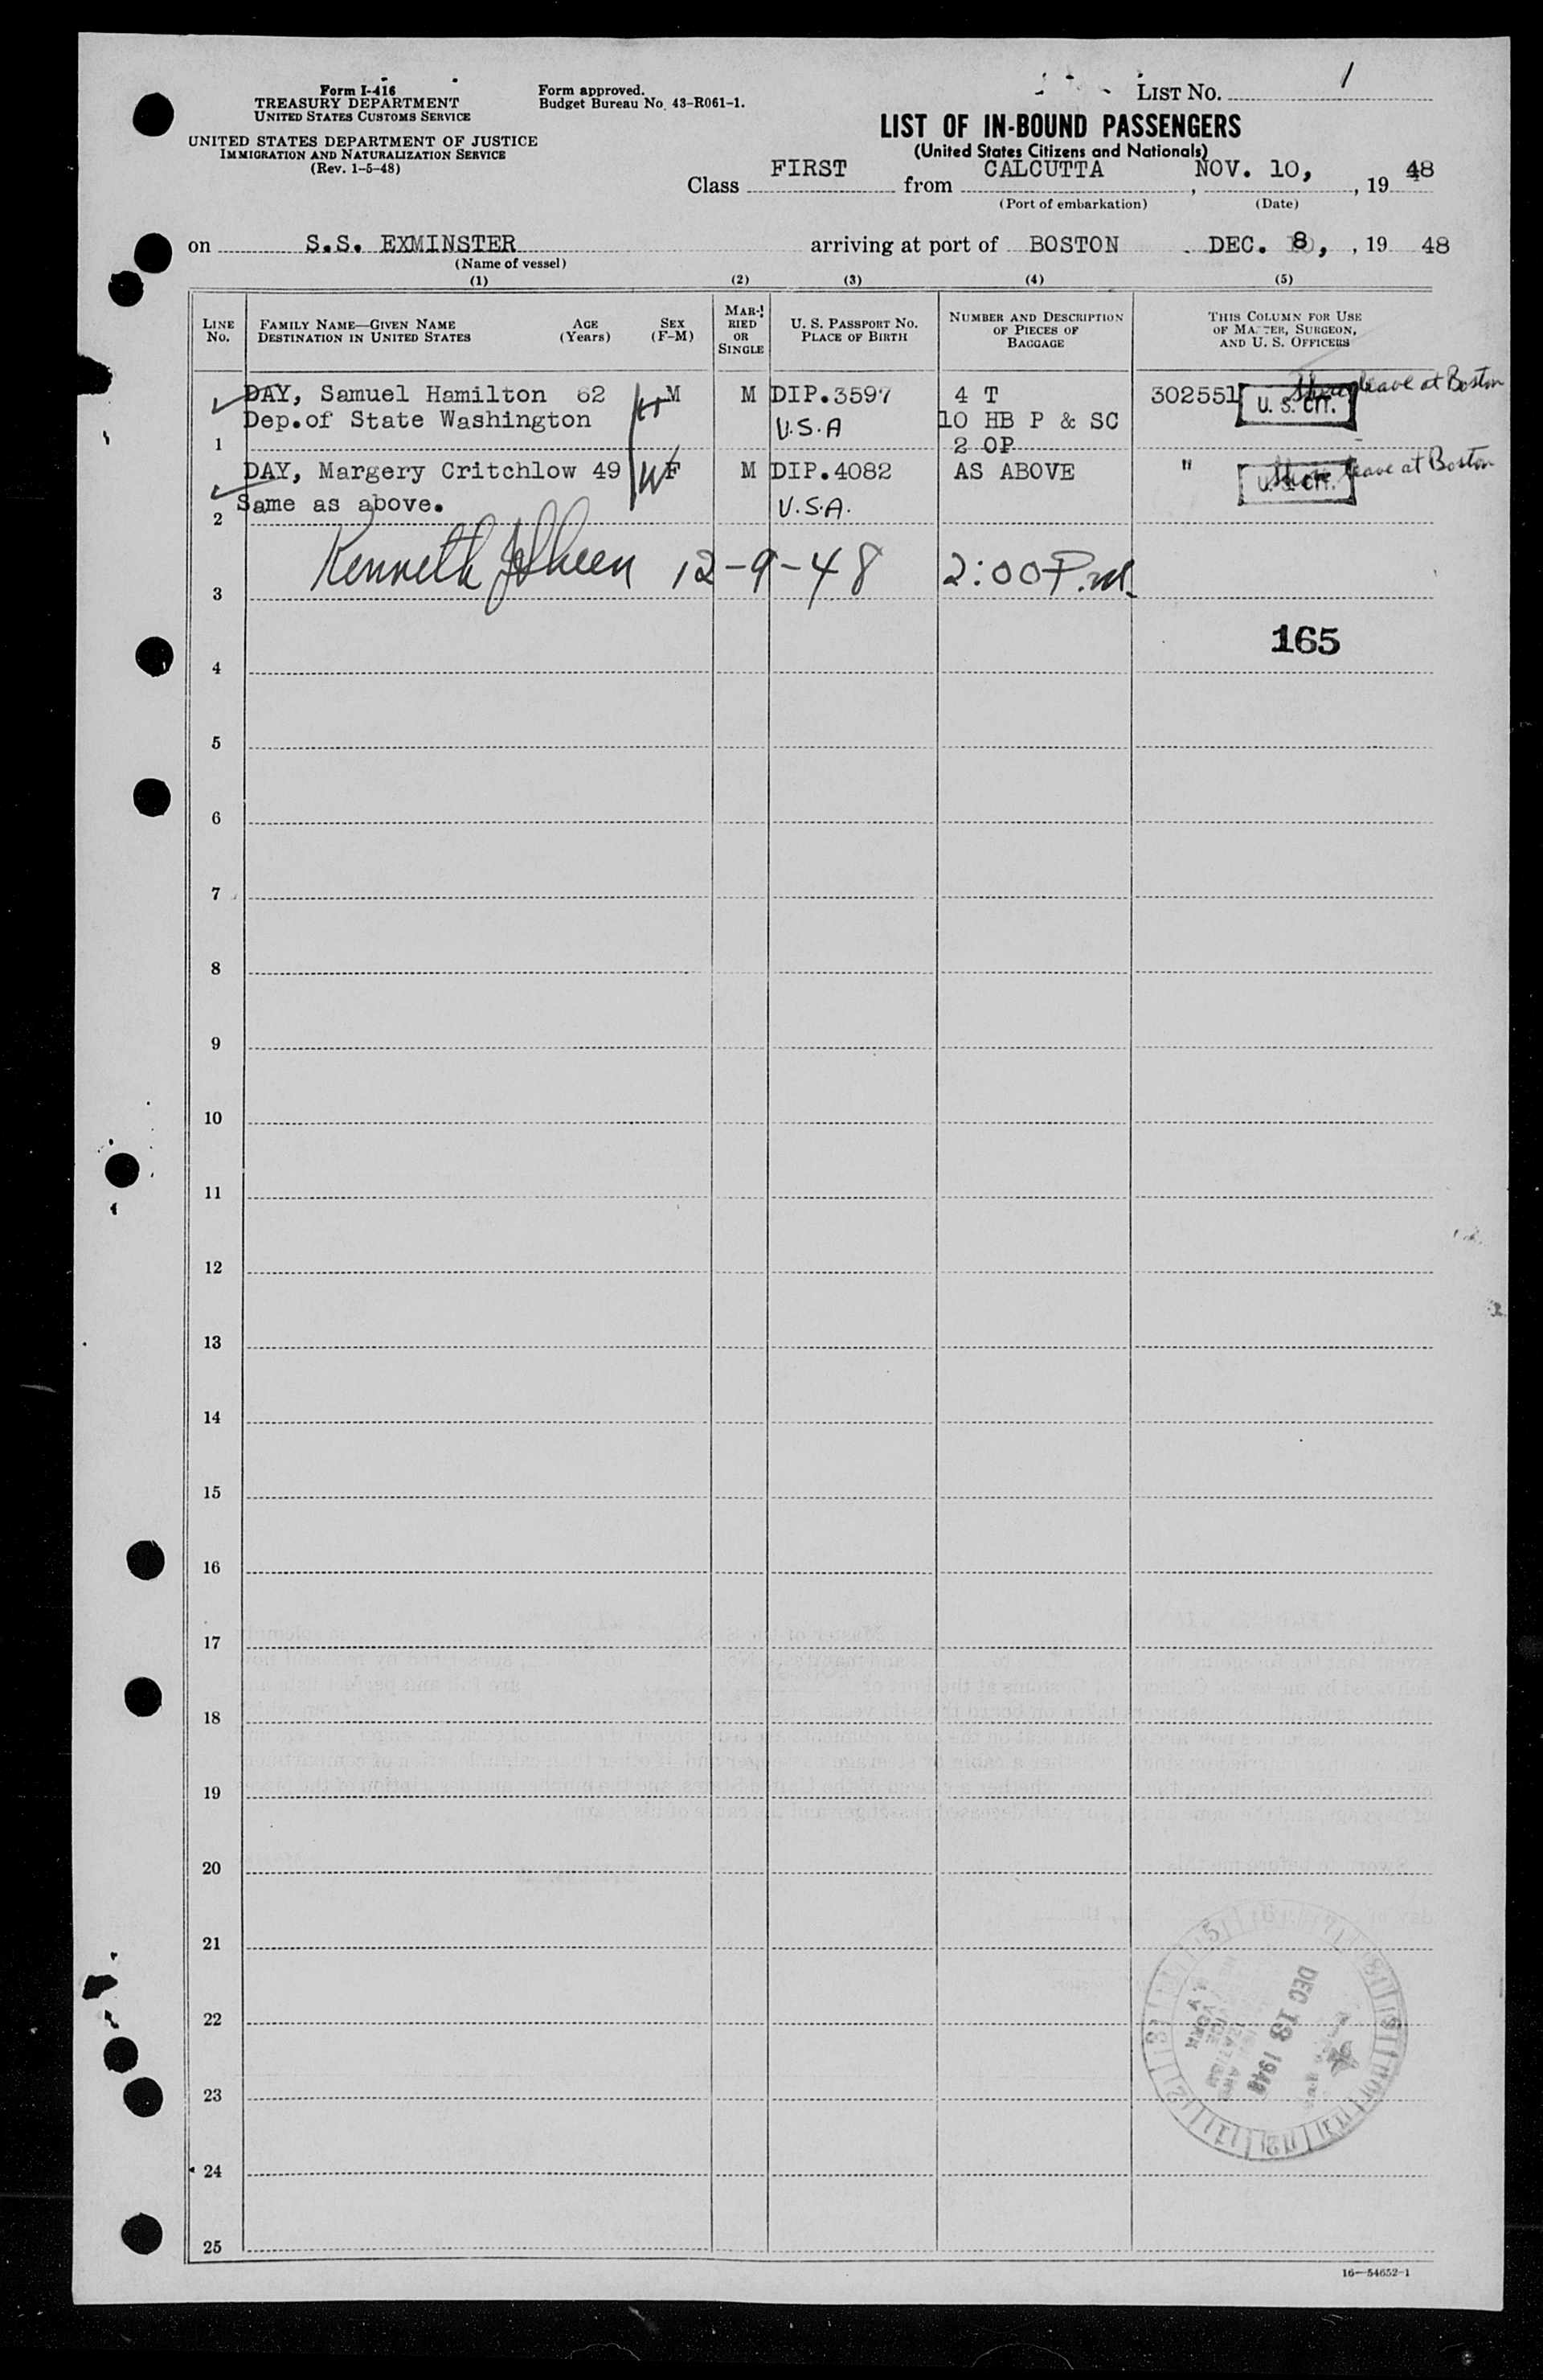 Form I-416
TREASURY DEPARTMENT
UNITED STATES CUSTOMS SERVICE
UNITED STATES DEPARTMENT OF JUSTICE
IMMIGRATION AND NATURALIZATION SERVICE
(Rev. 1-5-48)
Form approved.
Budget Bureau No. 43-R061-1.
LIST NO. 1
LIST OF IN-BOUND PASSENGERS
(United States Citizens and Nationals)
Class FIRST from CALCUTTA, NOV. 10, , 19 48
(Port of embarkation) (Date)
on S.S. EXMINSTER arriving at port of BOSTON DEC. 8, , 19 48
(Name of vessel)
(1) (2) (3) (4) (5)
LINE NO.
FAMILY NAME—GIVEN NAME AGE SEX
DESTINATION IN UNITED STATES (Years) (F-M)
MARRIED OR SINGLE
U. S. PASSPORT NO.
PLACE OF BIRTH
NUMBER AND DESCRIPTION
OF PIECES OF
BAGGAGE
THIS COLUMN FOR USE
OF MASTER, SURGEON,
AND U. S. OFFICERS
DAY, Samuel Hamilton 62 M M DIP.3597 4 T 302551 U. S. CIT. leave at Boston
Dep.of State Washington U.S.A 10 HB P & SC
1 2 OP
DAY, Margery Critchlow 49 W F M DIP.4082 AS ABOVE " U. S. CIT. leave at Boston
Same as above. U.S.A.
2
Kenneth 12-9-48 2:00 P.M.
3
165
4
5
6
7
8
9
10
11
12
13
14
15
16
17
18
19
20
21
22
23
24
25
DEC 13 1948
16—54652-1